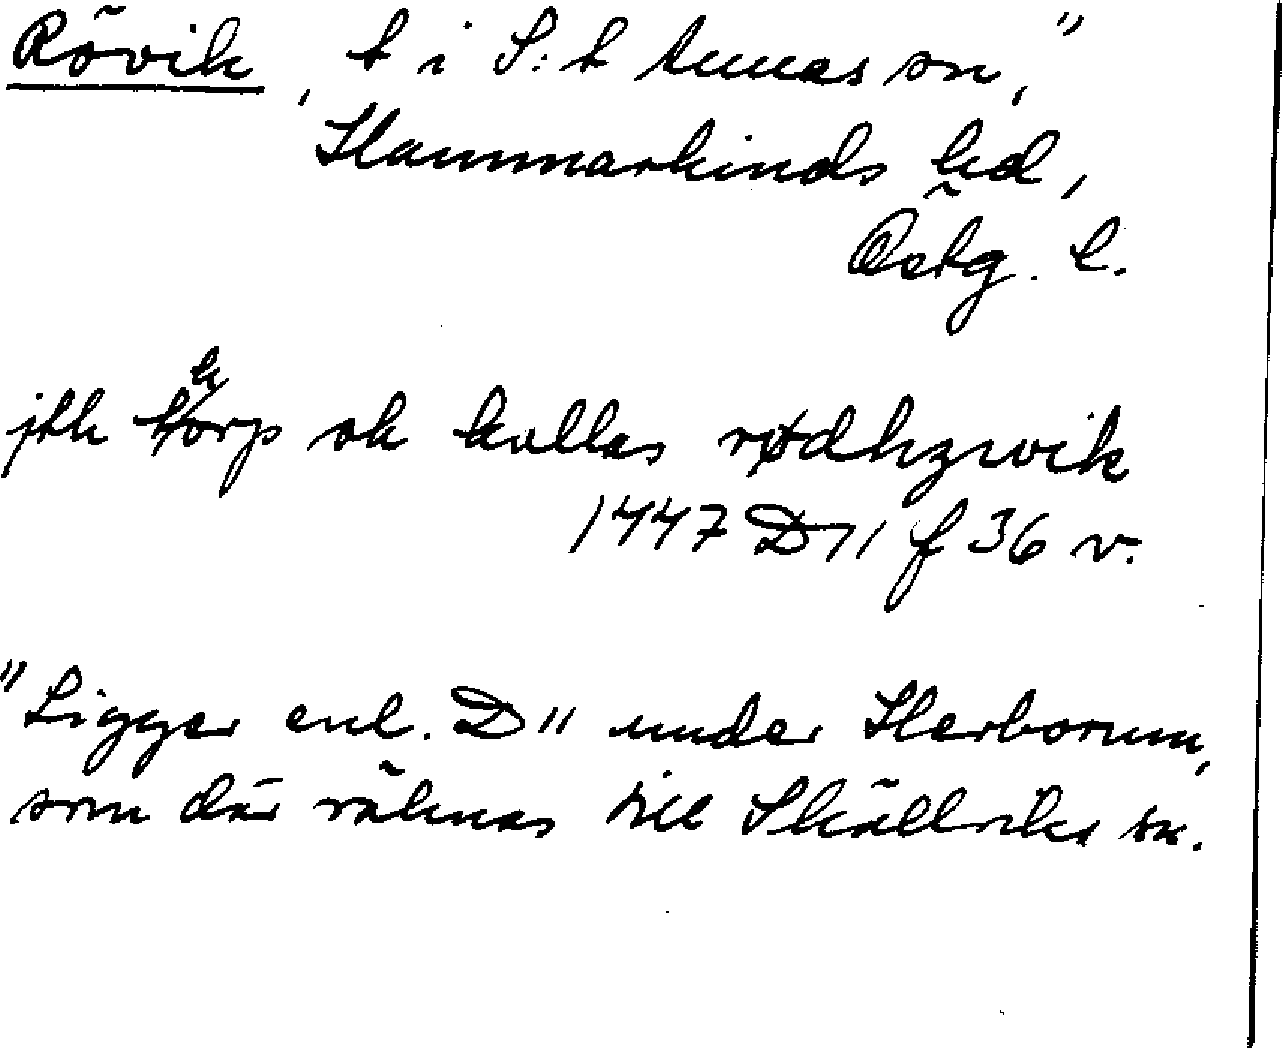 Rövik, t i S:t Annas sn,"
Hammarkinds hd,
Östg. l.
jtk thorp ok kallas rødhzwik
1447 D11 f 36 v.
"Ligger enl. D11 under Herborum,
som där räknas till Skällviks sn.